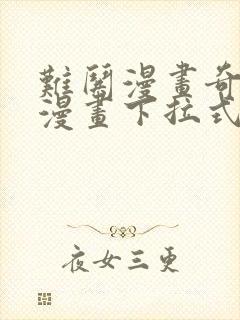 難鬧漫畫奇
漫畫下拉式
夜女三更